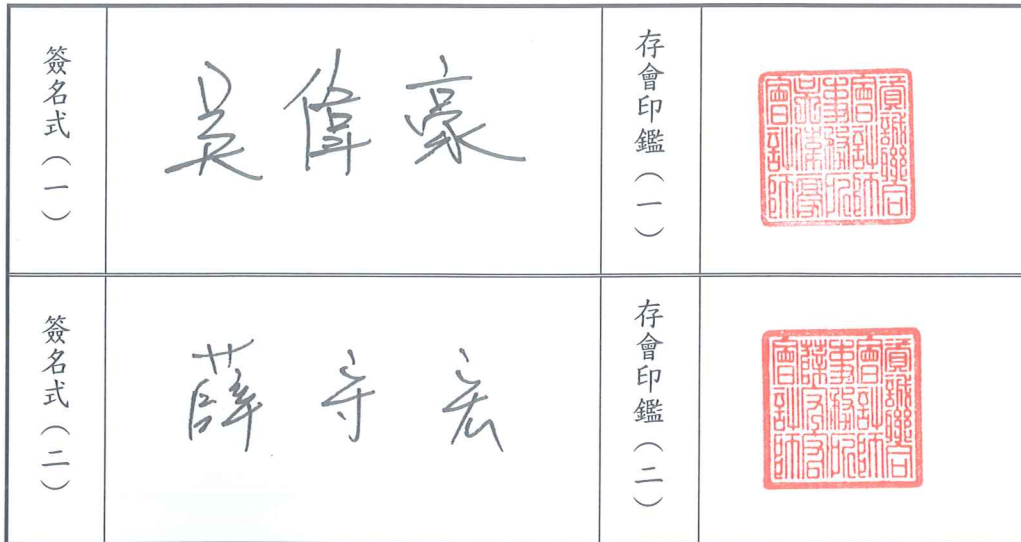 簽名式（一）
吳偉豪
存會印鑑（一）
資誠聯合
會計師
事務所
吳偉豪
會計師
簽名式（二）
薛守宏
存會印鑑（二）
資誠聯合
會計師
事務所
薛守宏
會計師